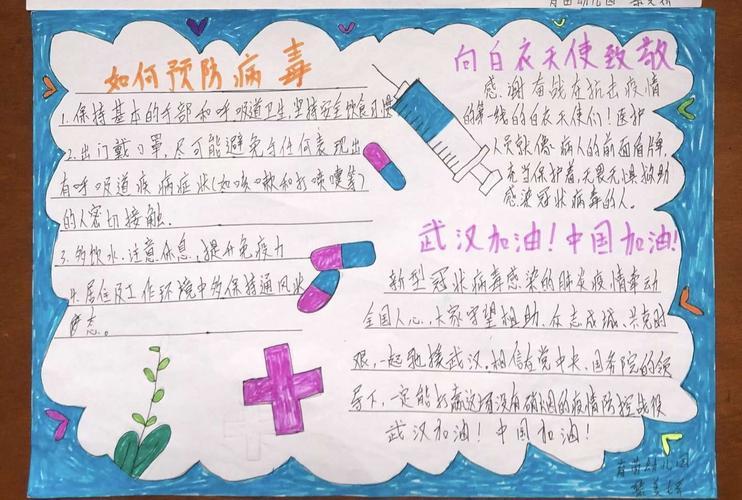 育苗幼儿园
如何预防病毒
1.保持基本的手部和呼吸道卫生,坚持安全饮食习惯
2.出门戴口罩,尽可能避免与任何表现出
有呼吸道疾病症状(如咳嗽和打喷嚏等)
的人密切接触.
3.多饮水.注意休息,提升免疫力
4.居住及工作环境中多保持通风状
态。
向白衣天使致敬
感谢奋战在抗击疫情
的第一线的白衣天使们!医护
人员就像病人的前面盾牌,
充当保护着,无畏无惧救助
感染冠状病毒的人。
武汉加油!中国加油!
新型冠状病毒感染的肺炎疫情牵动
全国人心,大家守望相助、众志成城、共克时
艰,一起驰援武汉.相信在党中央、国务院的领
导下,一定能打赢这场没有硝烟的疫情防控战役
武汉加油!中国加油!
育苗幼儿园